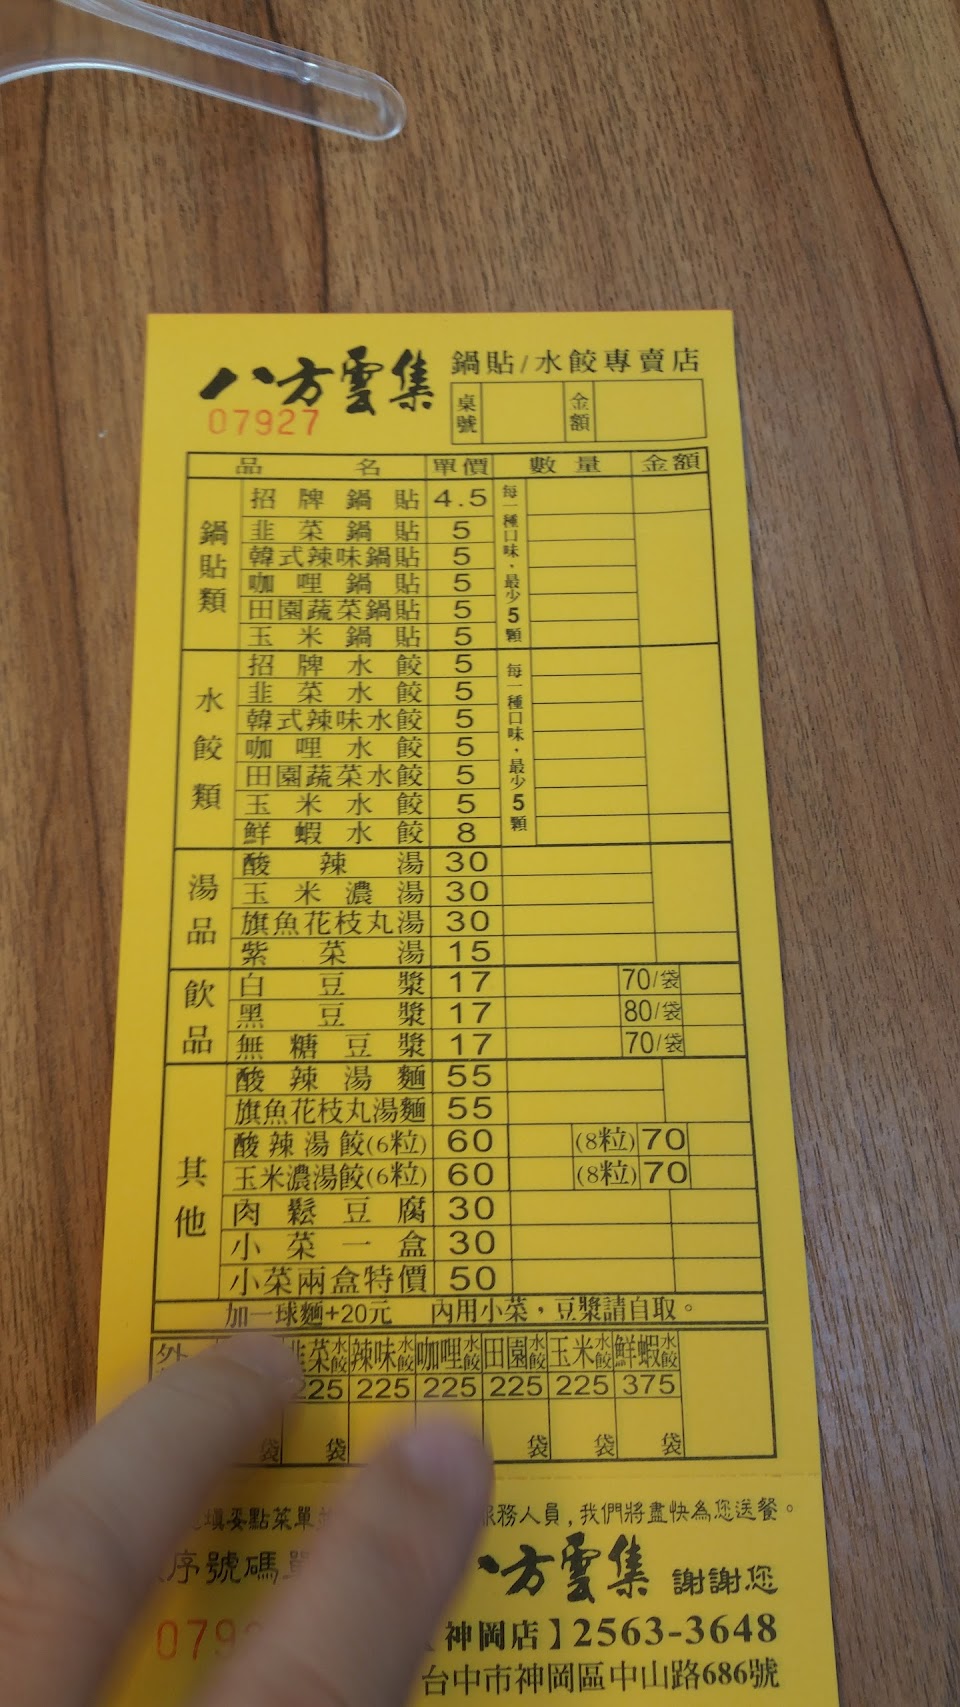 八方雲集 鍋貼/水餃專賣店
07927
桌號 金額
品名 單價 數量 金額
鍋貼類
每一種口味,最少5顆
招牌鍋貼 4.5
韭菜鍋貼 5
韓式辣味鍋貼 5
咖哩鍋貼 5
田園蔬菜鍋貼 5
玉米鍋貼 5
水餃類
每一種口味,最少5顆
招牌水餃 5
韭菜水餃 5
韓式辣味水餃 5
咖哩水餃 5
田園蔬菜水餃 5
玉米水餃 5
鮮蝦水餃 8
湯品
酸辣湯 30
玉米濃湯 30
旗魚花枝丸湯 30
紫菜湯 15
飲品
白豆漿 17 70/袋
黑豆漿 17 80/袋
無糖豆漿 17 70/袋
其他
酸辣湯麵 55
旗魚花枝丸湯麵 55
酸辣湯餃(6粒) 60 (8粒) 70
玉米濃湯餃(6粒) 60 (8粒) 70
肉鬆豆腐 30
小菜一盒 30
小菜兩盒特價 50
加一球麵+20元 內用小菜,豆漿請自取。
韭菜水餃 辣味水餃 咖哩水餃 田園水餃 玉米水餃 鮮蝦水餃
225 225 225 225 225 375
袋 袋 袋 袋 袋
填妥點菜單 服務人員,我們將盡快為您送餐。
序號碼 八方雲集 謝謝您
079 神岡店】2563-3648
台中市神岡區中山路686號